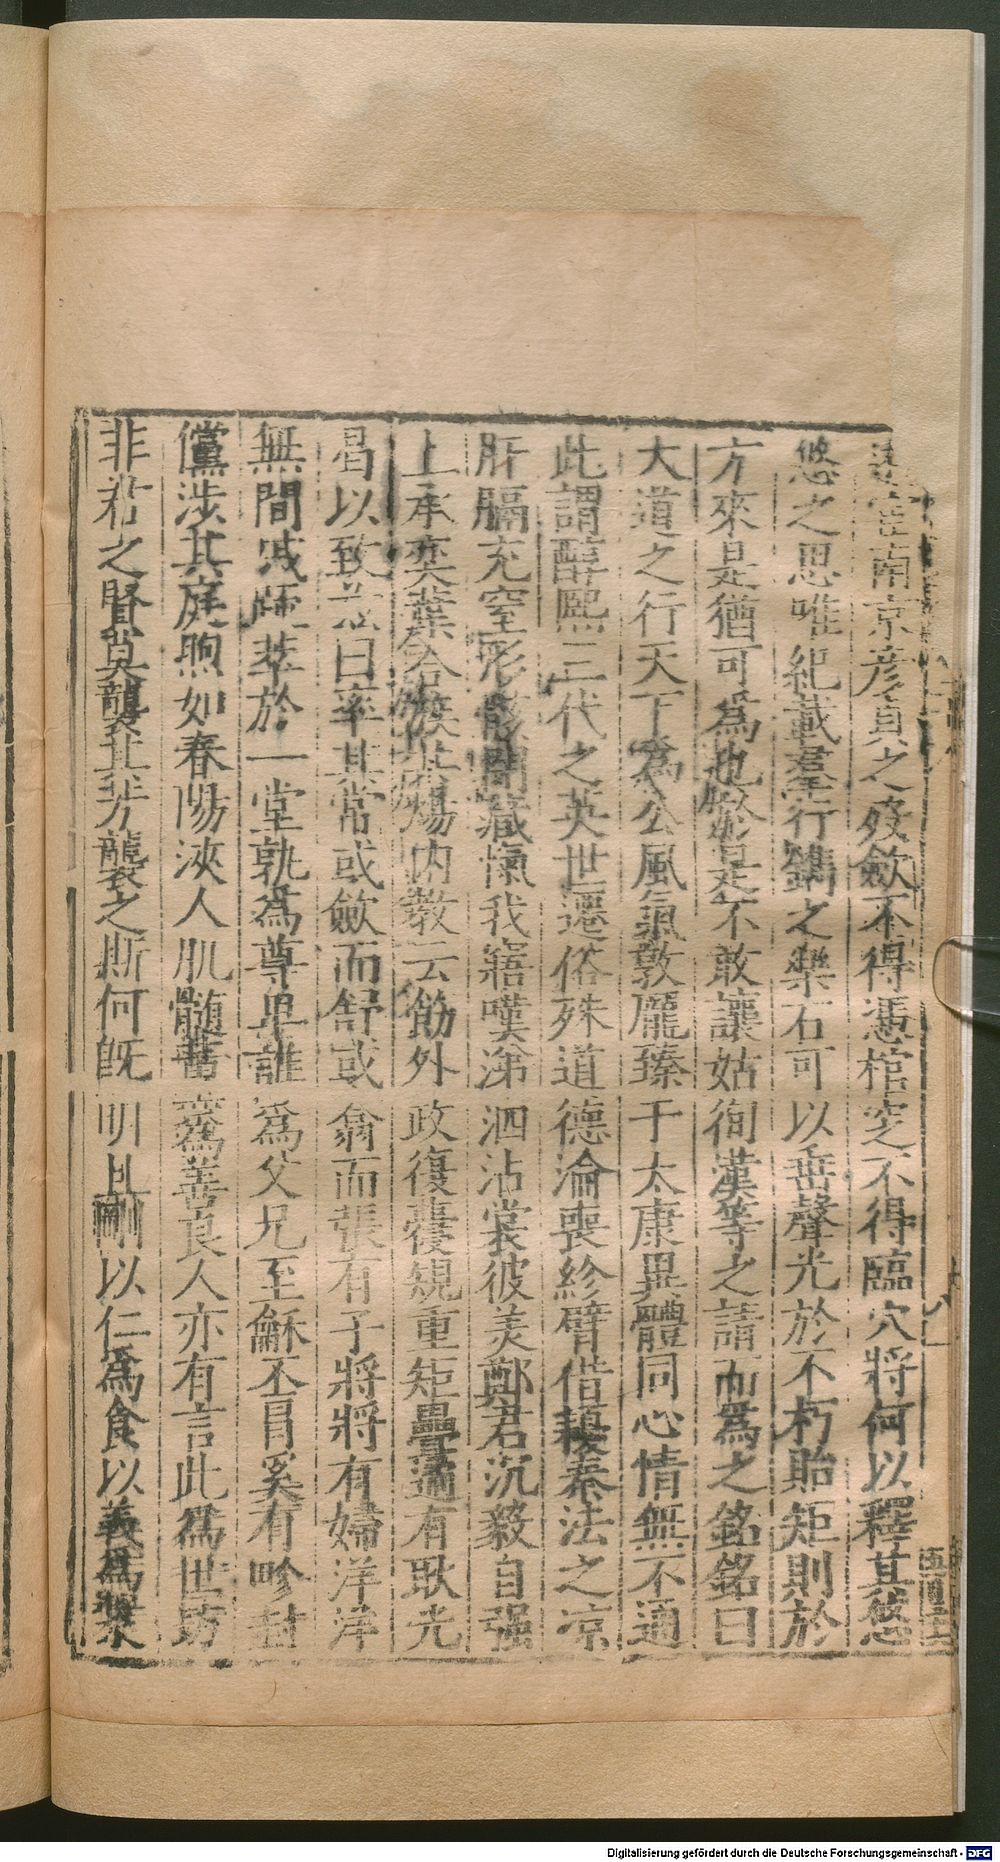 遠宦南京彥貞之歿斂不得憑棺窆不得臨穴將何以釋其悠
悠之思唯紀載羣行鐫之樂石可以垂聲光於不朽貽矩則於
方來是猶可爲也於是不敢讓姑徇漢等之請而爲之銘銘曰
大道之行天下爲公風氣敦龐臻于太康異體同心情無不通
此謂醇熙三代之英世遷俗殊道德淪喪紾臂借耰秦法之凉
肝膈充窒形骸閉藏愾我寤嘆涕泗沾裳彼美鄭君沉毅自强
上承奕葉合族其煬内敎云飭外政復䕶規重矩疊遹有耿光
曷以致茲曰率其常或斂而舒或翕而張有子將將有婦洋洋
無間戚疏萃於一堂孰爲尊卑誰爲父兄至龢丕冒奚有畛封
儻涉其庭煦如春陽浹人肌髓薔爲善良人亦有言此爲世坊
非君之賢莫襲其芳襲之斯何旣明且剛以仁爲食以義爲漿
Digitalisierung gefördert durch die Deutsche Forschungsgemeinschaft - DFG